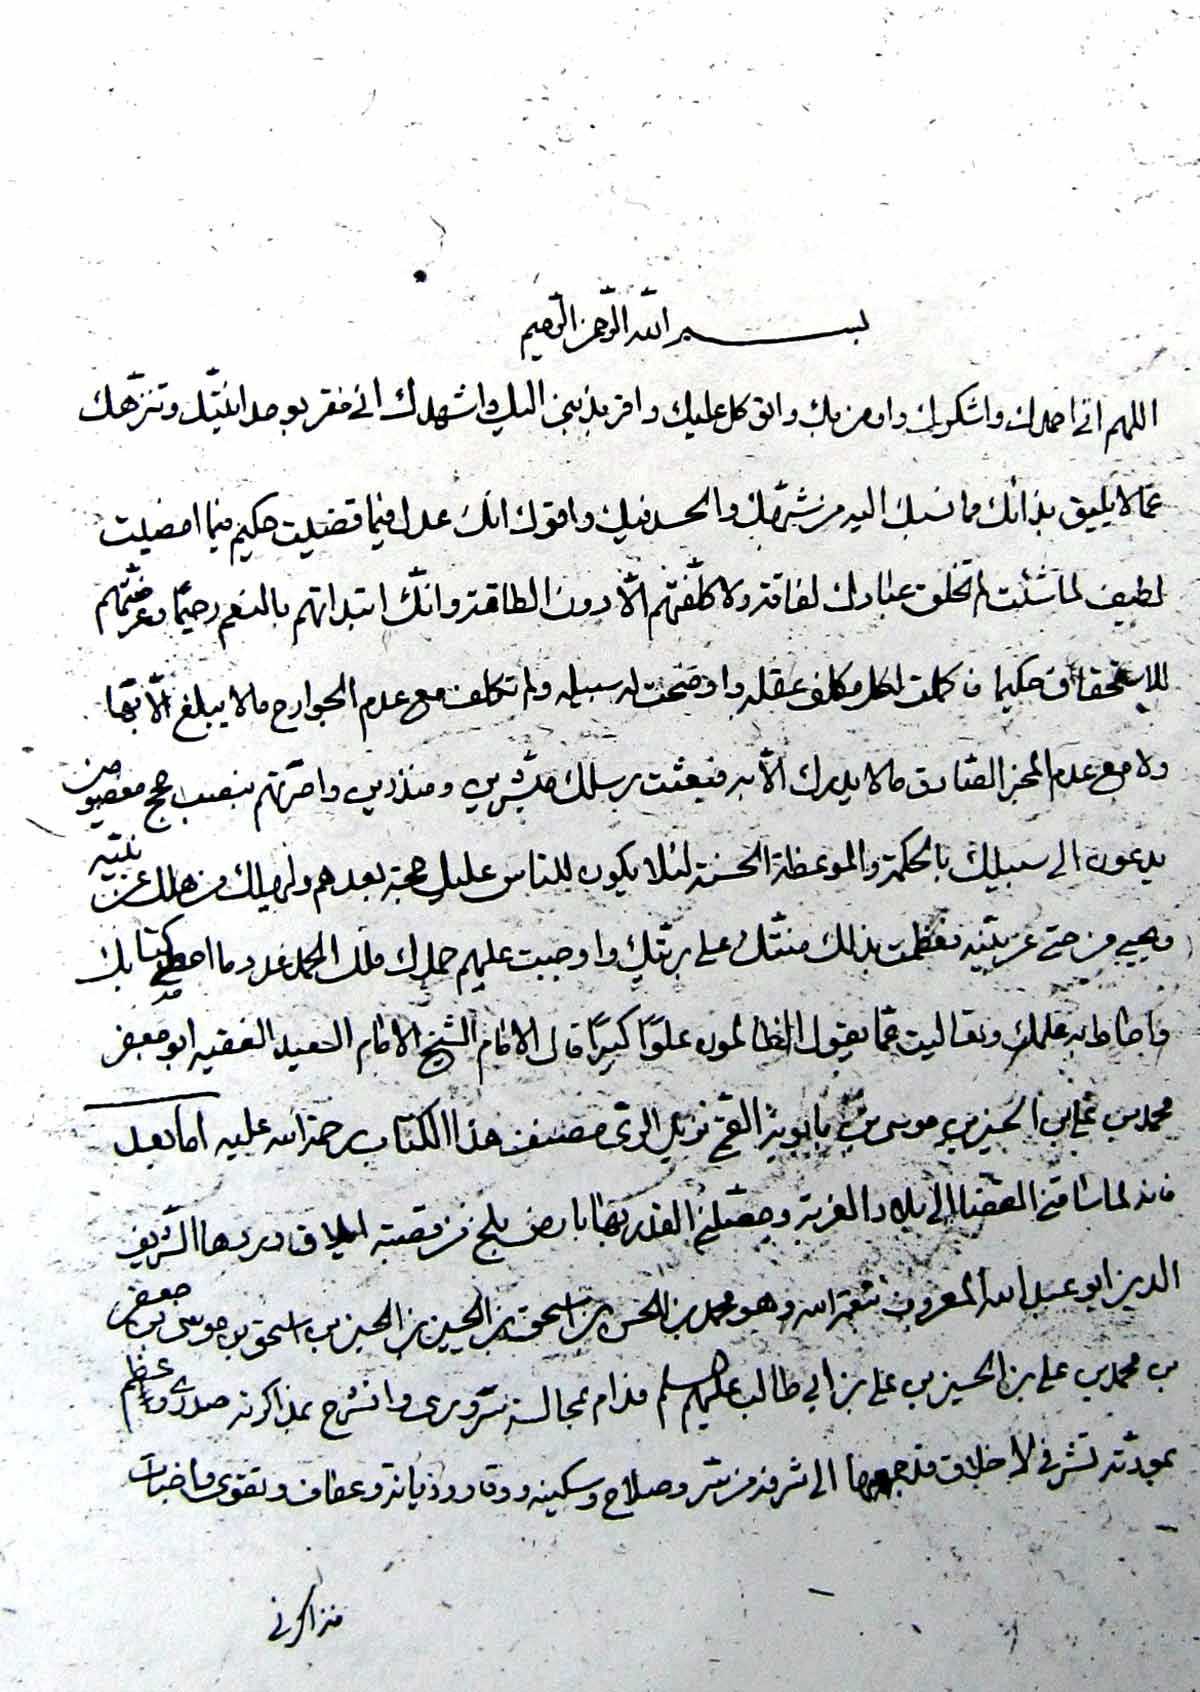 بسم الله الرّحمن الرّحيم
اللهم اني احمدك واشكرك واومن بك واتوكل عليك واقر بذنبي اليك واشهدك اني مقر بوحدانيتك وتنزهك
عمّا لا يليق بذاتك مما نسبك اليه من شبّهك والحد فيك واقول انك عدل فيما قضيت حكيم فيما امضيت
لطيف لما شئت لم تخلق عبادك لفاقة ولا كلّفتهم الّا دون الطاقة وانّك ابتداتهم بالنعم رحيمًا وعرضتهم
للاستحقاق حكيما فاكملت لكل مكلف عقله واوضحت له سبيله ولم تكلف مع عدم الجوارح ما لا يبلغ الّا بها
ولا مع عدم المخبر الصّادق ما لا يدرك الّا به فبعثت رسلك مبشّرين ومنذرين وامرتهم بنصب حجج معصومين
يدعون الى سبيلك بالحكمة والموعظة الحسنة لئلا يكون للناس عليك حجة بعدهم وليهلك من هلك عن بيّنه
ويحيي من حيّ عن بيّنه فعظمت بذلك منتّك على بريّتك واوجبت عليهم حمدك فلك الحمد عدد ما احصى كتابك
واحاط به علمك وتعاليت عمّا يقول الظالمون علوًّا كبيرًا قال الامام الشيخ الامام السعيد الفقيه ابو جعفر
محمد بن علي بن الحسين بن موسى بن بابويه القمّي نزيل الرّي مصنف هذا الكتاب رحمة الله عليه اما بعد
فانه لما ساقني القضا الى بلاد الغربة وحصّلني القدر بها بارض بلخ من قصبة ايلاق وردها الشّريف
الدين ابو عبد الله المعروف بنعمة الله وهو محمد بن الحسن بن اسحق بن الحسين بن الحسين بن اسحق بن موسى بن جعفر
بن محمد بن علي بن الحسين بن علي بن ابي طالب عليهم السلم فدام بمجالسته سروري وانشرح بمذاكرته صدري وعظم
بمودّته تشرفي لاخلاق قد جمعها الى شرفه من ستر وصلاح وسكينه ووقار وديانة وعفاف وتقوى واخبات
فذاكرني